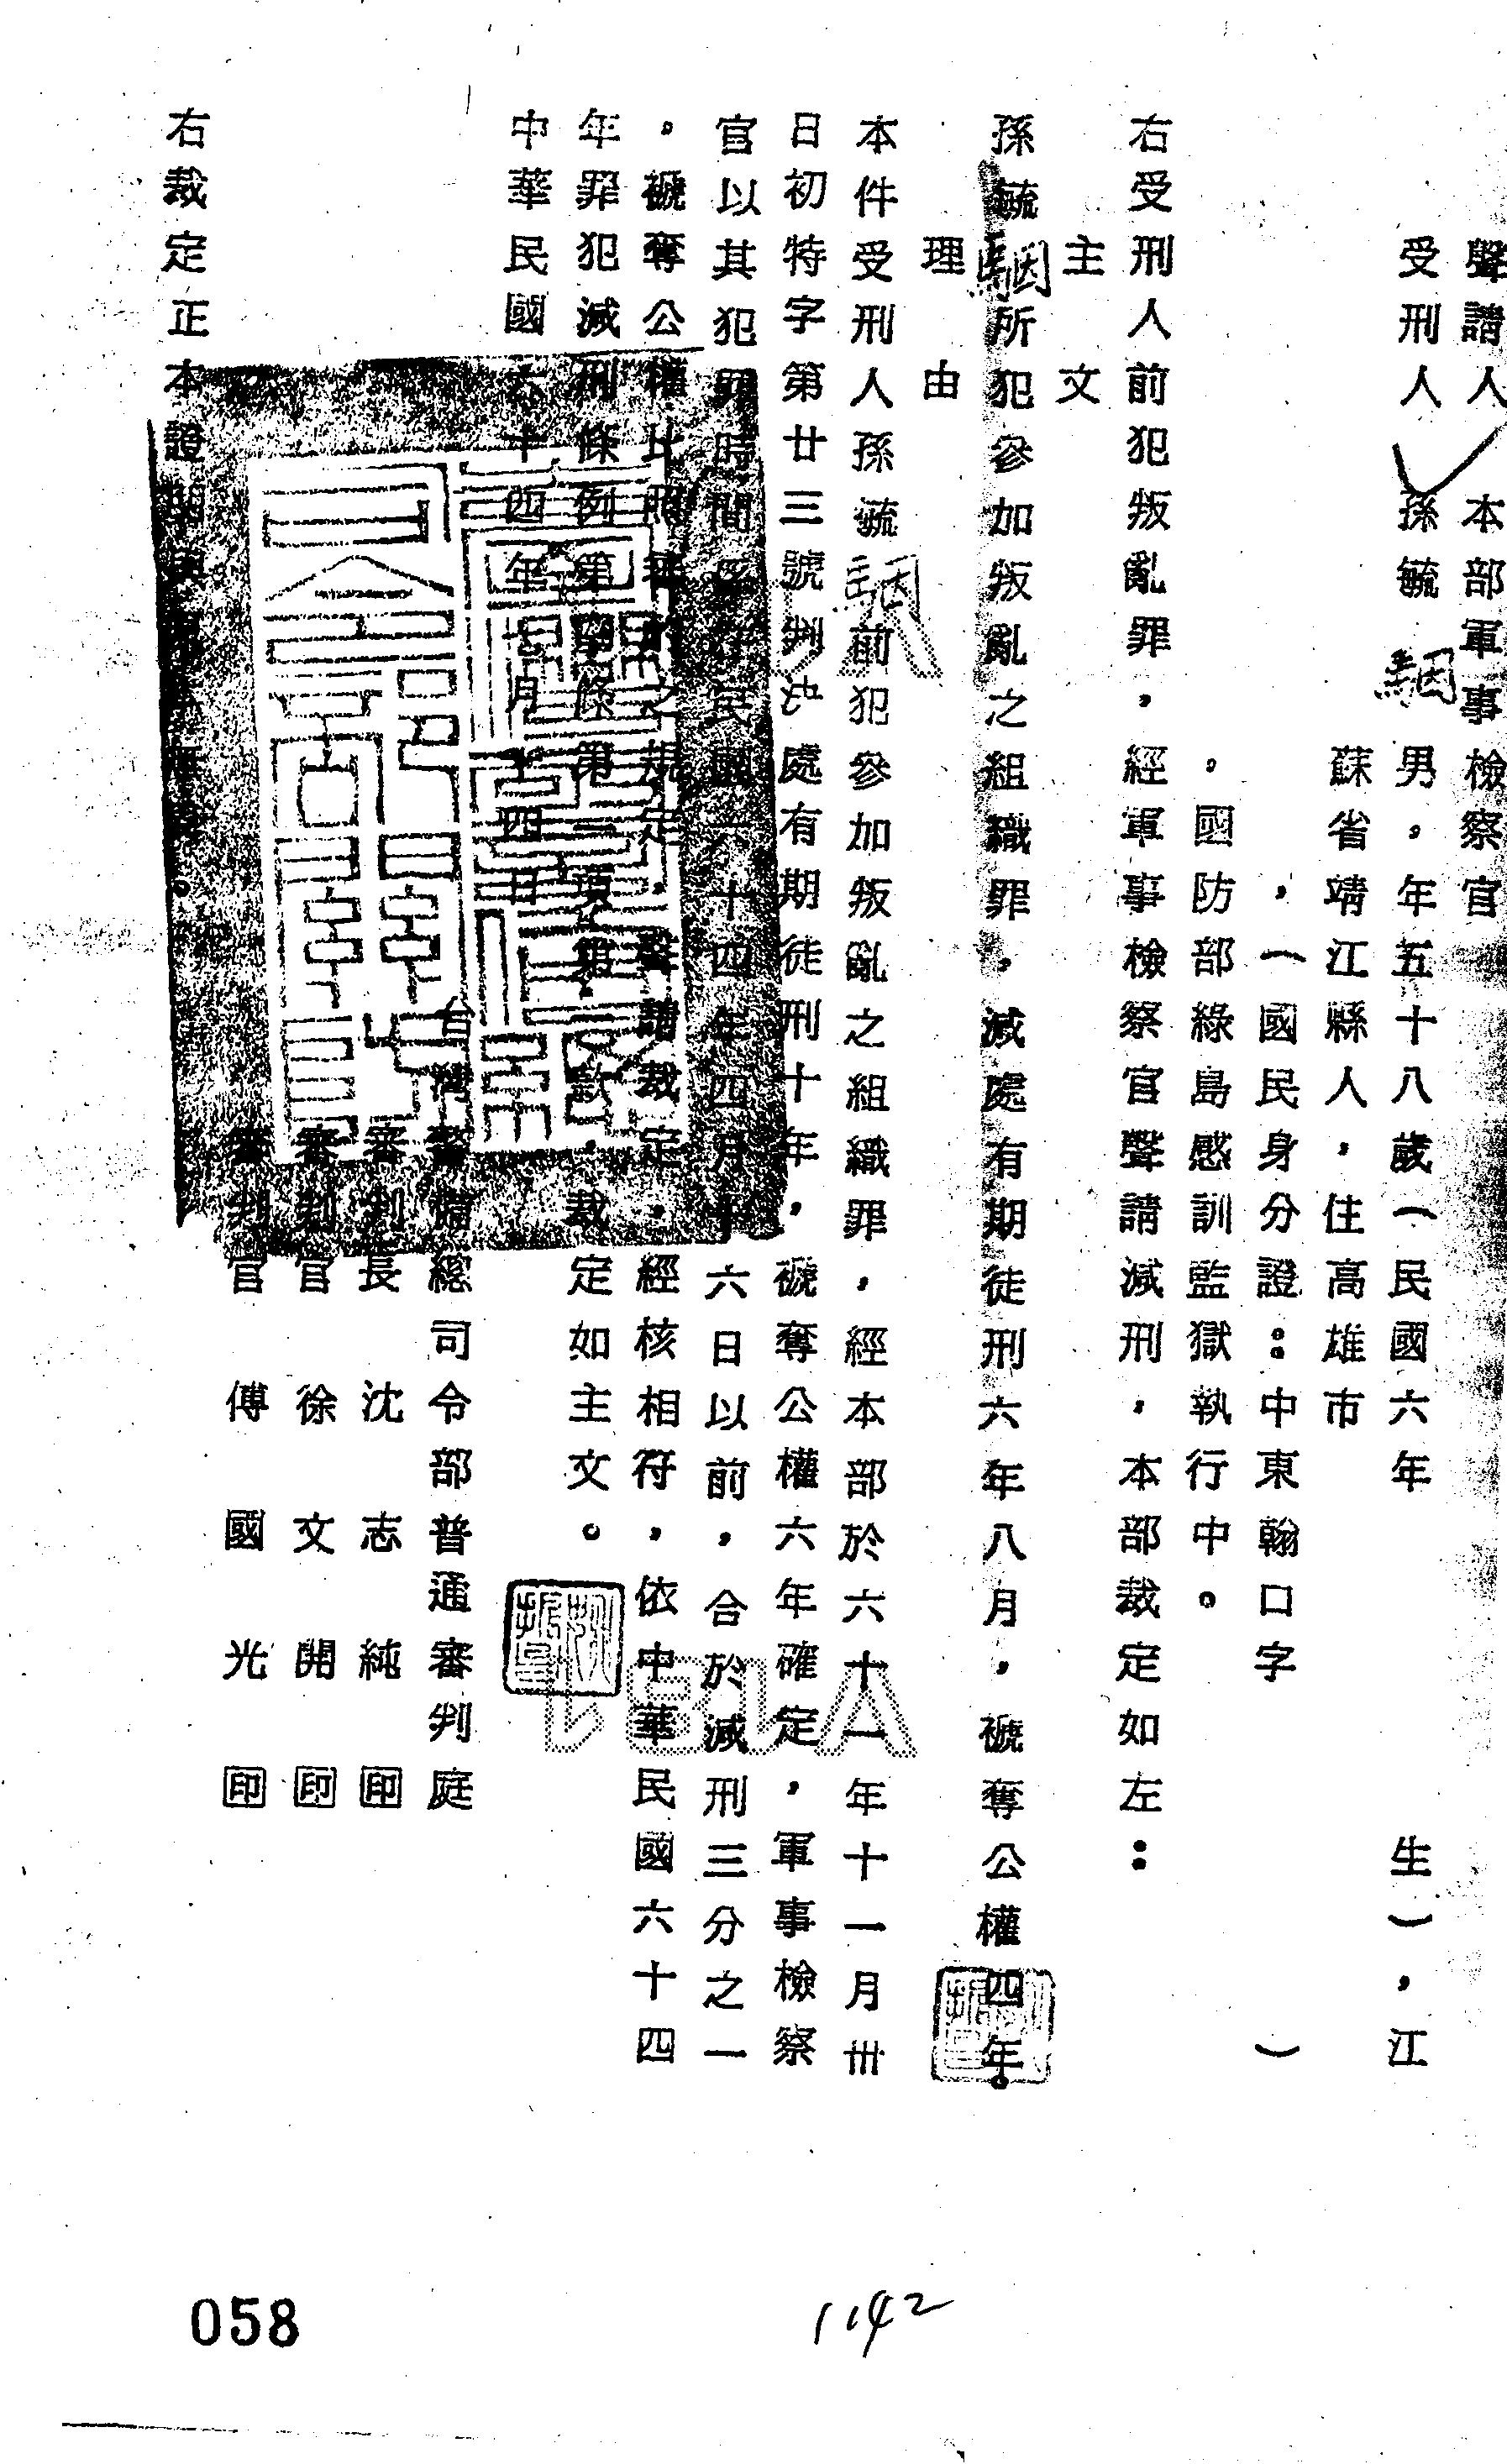 聲請人 本部軍事檢察官
受刑人 孫毓駰 男,年五十八歲(民國六年 生),江
蘇省靖江縣人,住高雄市
,(國民身分證:中東翰口字 )
。國防部綠島感訓監獄執行中。
右受刑人前犯叛亂罪,經軍事檢察官聲請減刑,本部裁定如左:
主文
孫毓駰所犯參加叛亂之組織罪,減處有期徒刑六年八月,褫奪公權四年。
理由
本件受刑人孫毓駰前犯參加叛亂之組織罪,經本部於六十一年十一月卅
日初特字第廿三號判決處有期徒刑十年,褫奪公權六年確定,軍事檢察
官以其犯罪時間係在民國六十四年四月十六日以前,合於減刑三分之一
,褫奪公權比照主刑之規定,聲請裁定,經核相符,依中華民國六十四
年罪犯減刑條例第 條第一項第 款,裁定如主文。
中華民國六十四年七月十四日
台灣警備總司令部普通審判庭
審判長 沈志純 印
審判官 徐文開 印
審判官 傅國光 印
右裁定正本證明與原本無異。
1142
058